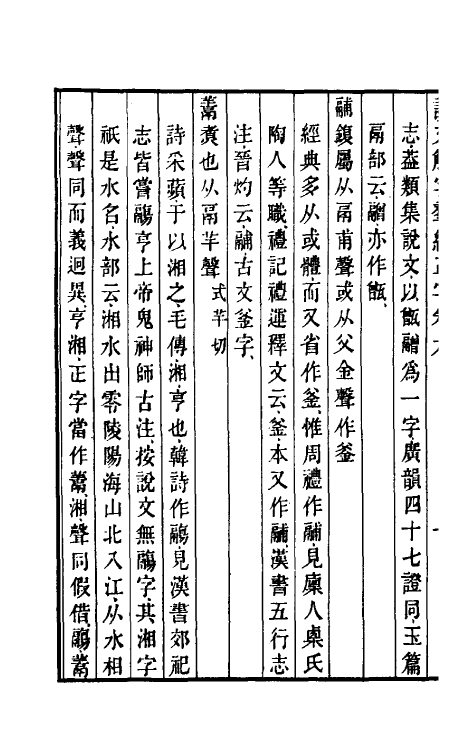 志葢類集說文以甑䰝爲一字廣韻四十七證同玉篇
鬲部云䰝亦作甑
鬴鍑屬从鬲甫聲或从父金聲作釜
經典多从或體而又省作釜惟周禮作鬴見廩人㮚氏
陶人等職禮記禮運釋文云釜本又作鬴漢書五行志
注晉灼云鬴古文釜字
䰞煑也从鬲羊聲 式羊切
詩采蘋于以湘之毛傳湘亨也韓詩作鬺見漢書郊祀
志皆嘗鬺亨上帝鬼神師古注按說文無鬺字其湘字
祇是水名水部云湘水出零陵陽海山北入江从水相
聲聲同而義迥異亨湘正字當作䰞湘聲同假借鬺䰞